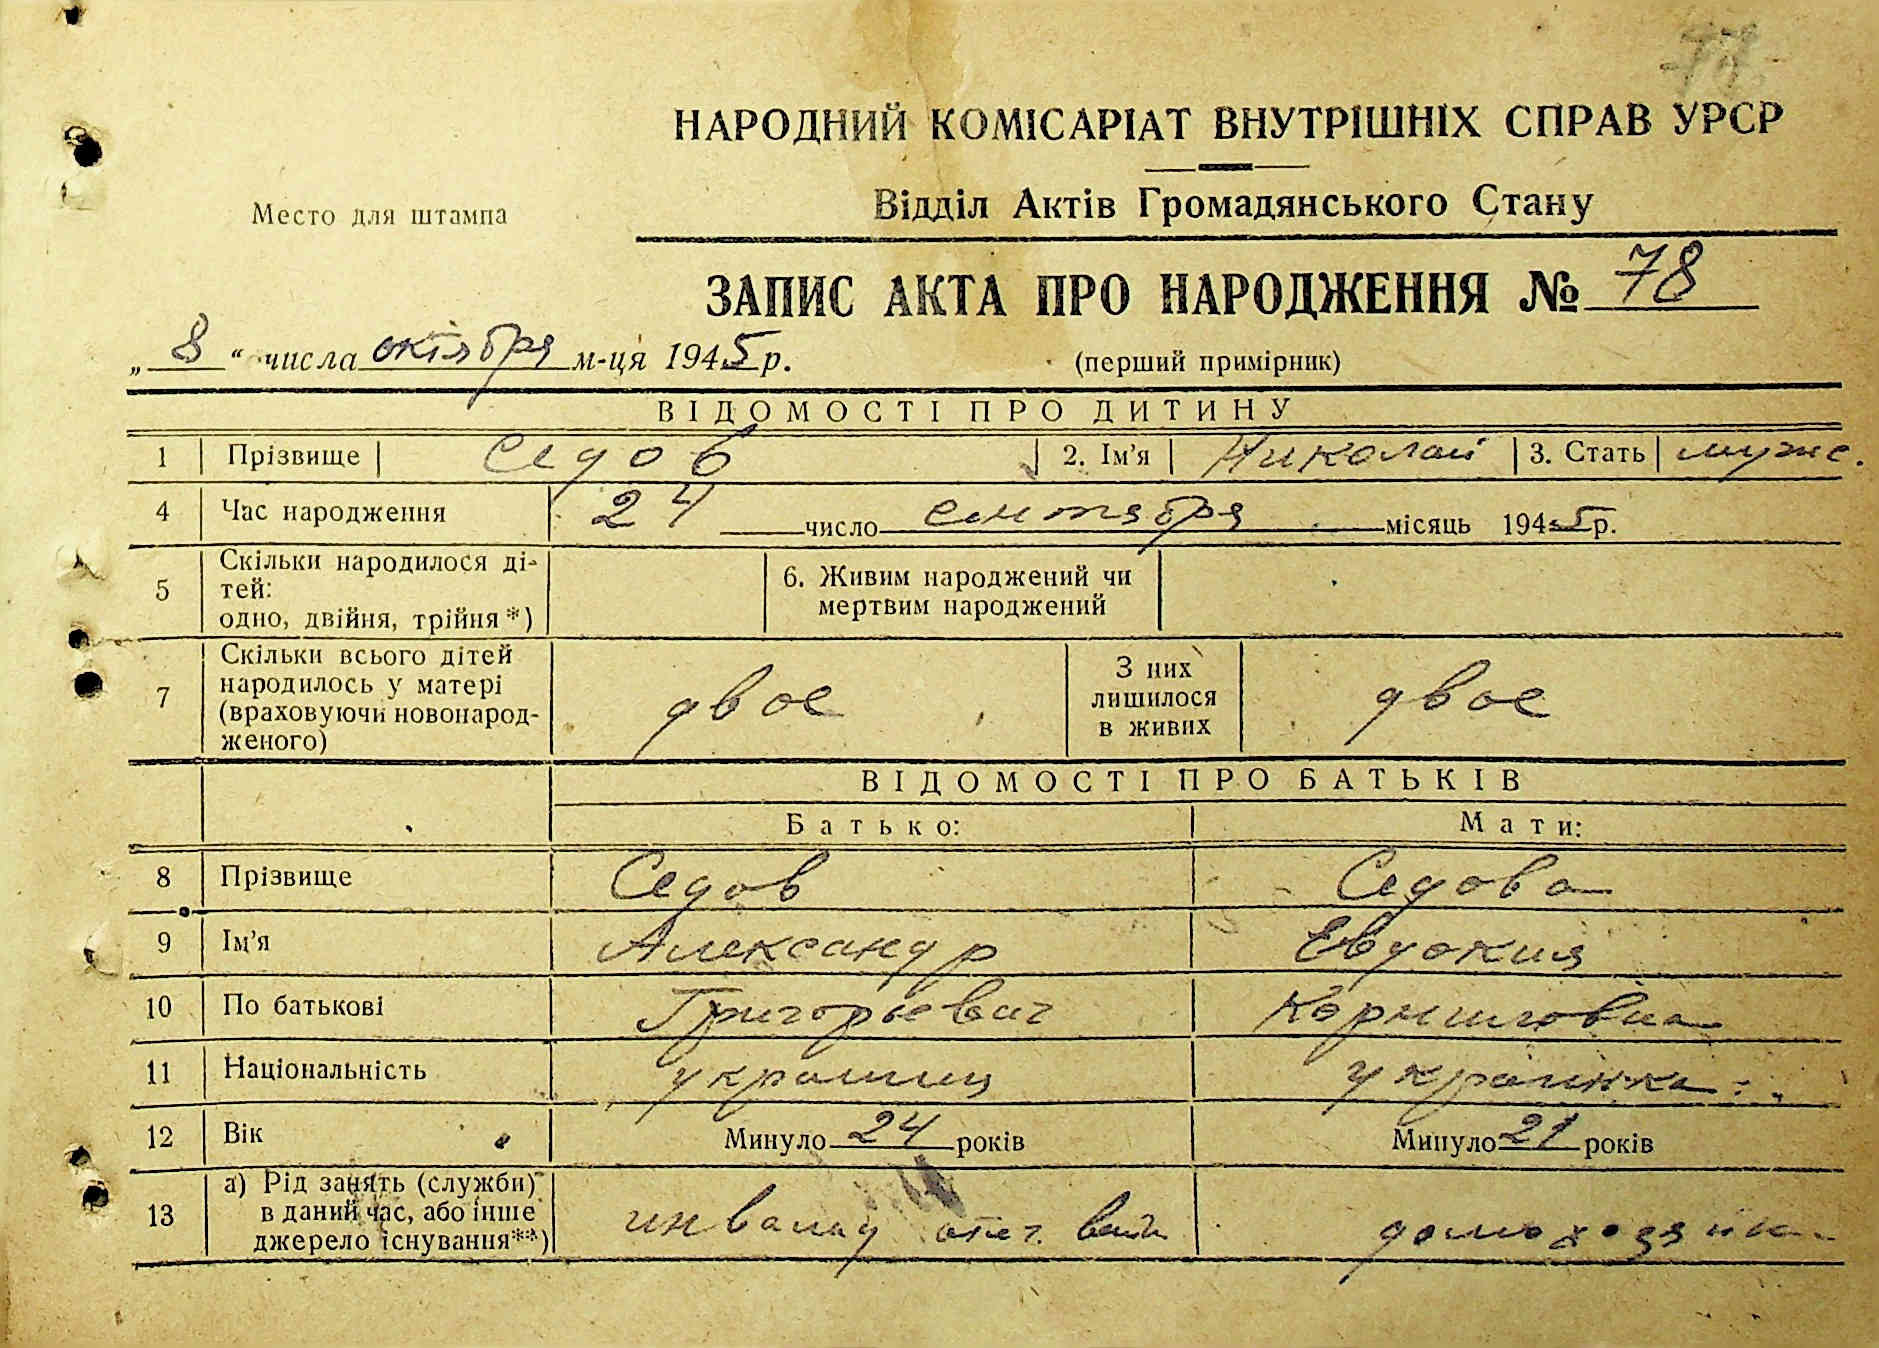 НАРОДНИЙ КОМІСАРІАТ ВНУТРІШНІХ СПРАВ УРСР
Место для штампа
Відділ Актів Громадянського Стану
ЗАПИС АКТА ПРО НАРОДЖЕННЯ № 78
„8“ числа октября м-ця 1945 р.
(перший примірник)
ВІДОМОСТІ ПРО ДИТИНУ
1 Прізвище Седов 2. Ім'я Николай 3. Стать мужс.
4 Час народження 24 число сентября місяць 1945 р.
5 Скільки народилося ді-
тей:
одно, двійня, трійня*)
6. Живим народжений чи
мертвим народжений
7 Скільки всього дітей
народилось у матері
(враховуючи новонарод-
женого)
двое
З них
лишилося
в живих
двое
ВІДОМОСТІ ПРО БАТЬКІВ
Батько: Мати:
8 Прізвище Седов Седова
9 Ім'я Александр Евдокия
10 По батькові Григорьевич
11 Національність украинец украинка
12 Вік Минуло 24 років Минуло 21 років
13 а) Рід занять (служби)
в даний час, або інше
джерело існування**)
инвалид отеч. войн домохозяйка